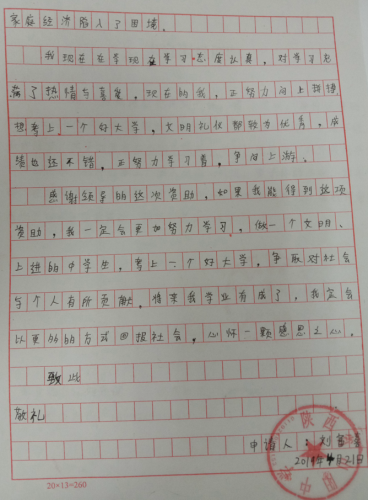 家庭经济陷入了困境。
我现在在学现在学习态度认真，对学习充
满了热情与喜爱，现在的我，正努力向上拼搏
想考上一个好大学，文明礼仪都颇为优秀，成
绩也还不错，正努力学习着，争取上游。
感谢领导的这次资助，如果我能得到这项
资助，我一定会更加努力学习，做一个文明、
上进的中学生，考上一个好大学，争取对社会
与个人有所贡献。将来我学业有成了，我定会
以更的的方式回报社会，心怀一颗感恩之心。
致此
敬礼
申请人：刘
2019年4月21日
20×13=260